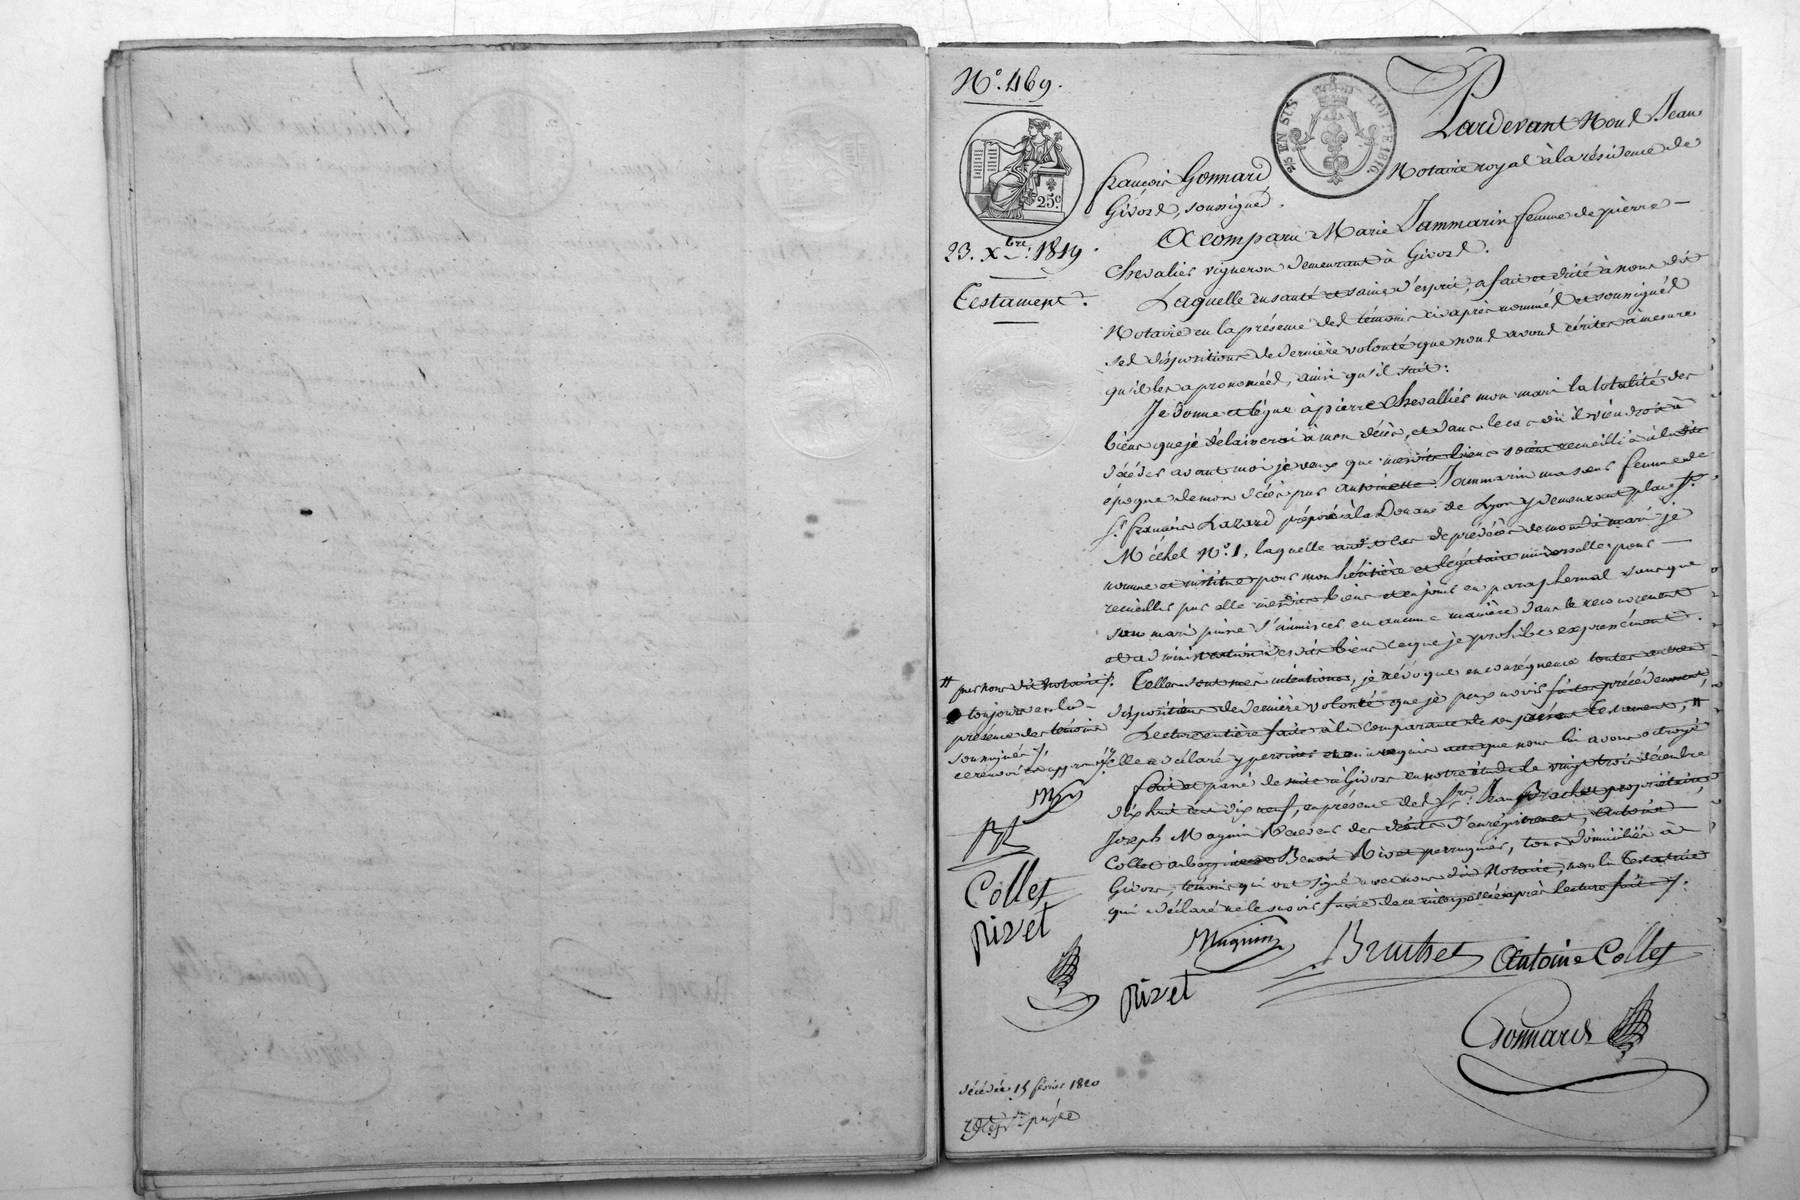 N.° 469.
25 EN SUS LOI DE 1816
25c
23. Xbre. 1819.
Testament.
Pardevant Nous Jean
françois Gonnard Notaire royal à la résidence de
Givors, soussigné.
A comparu Marie Jammarin femme de pierre
Chevalier vigneron demeurant à Givors.
Laquelle en santé et saine d'esprit, a fait et dicté à nous dit
Notaire en la présence des témoins ci après nommés et soussignés
ses dispositions de dernière volonté que nous avons écrites à mesure
qu'il les a prononcées, ainsi qu'il suit:
Je donne et lègue à pierre Chevallier mon mari la totalité des
biens que je délaisserai à mon décès, et dans le cas où il viendroit à
décéder avant moi je veux que mesdits biens soient recueilli à la dite
époque de mon décès par antoinette Jammarin ma sœur femme de
Sr. françois Lazard préposé à la Douane de Lyon y demeurant place St.
Michel N.° 1, laquelle audit cas de prédécès de mondit mari je
nomme et institue pour mon héritière et légataire universelle pour
recueillir par elle mesdits biens et en jouir en paraphernal sans que
son mari puisse s'immiscer en aucune manière dans le recouvrement
et administration desdits biens ce que je prohibe expressément.
Telles sont mes intentions, je révoque en conséquence toutes autres
dispositions de dernière volonté que je peux avoir faites précédemment,
Lecture entière faite à la comparante de son présent Testament, #
elle a déclaré y persister et en a requis acte que nous lui avons octroyé
fait et passé de suite à Givors en notre étude le vingt trois décembre
dix huit cent dix neuf, en présence des Srs. Jean Brachet propriétaire,
Joseph Magnin Receveur des droits d'enrégistrement, Antoine
Collet aubergiste et Benoit Rivet perruquier, tous domiciliés à
Givors, témoins qui ont signé avec nous dit Notaire, non la Testatrice
qui a déclaré ne le savoir faire de ce interpellée après lecture faite ./.
# par nous dit Notaire
toujours en la
présence des témoins
soussignés ./.
ce renvoi est approuvé
Collet
Rivet
Magnin
Brachet
Antoine Collet
Rivet
Gonnard
décédée 15 février 1820